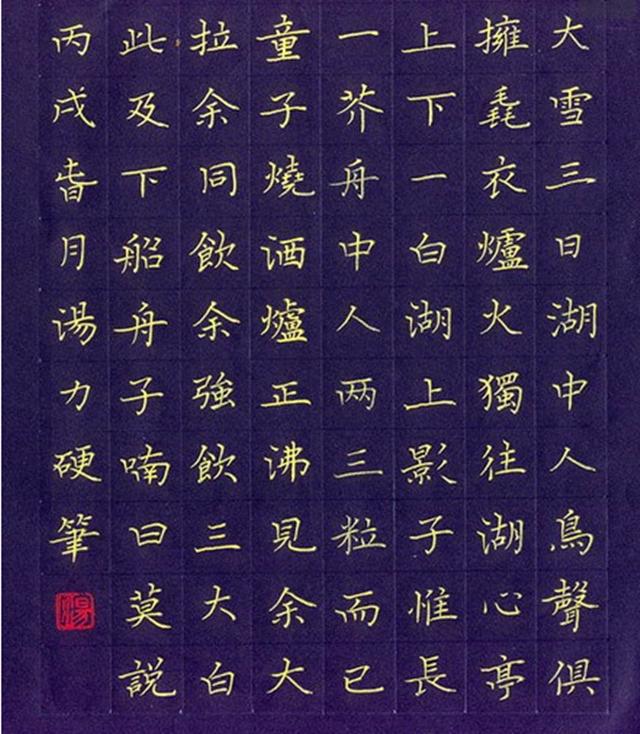 大雪三日湖中人鳥聲俱
擁毳衣爐火獨往湖心亭
上下一白湖上影子惟長
一芥舟中人两三粒而已
童子燒酒爐正沸見余大
拉余同飲余強飲三大白
此及下船舟子喃曰莫說
丙戌旹月湯力硬筆
湯